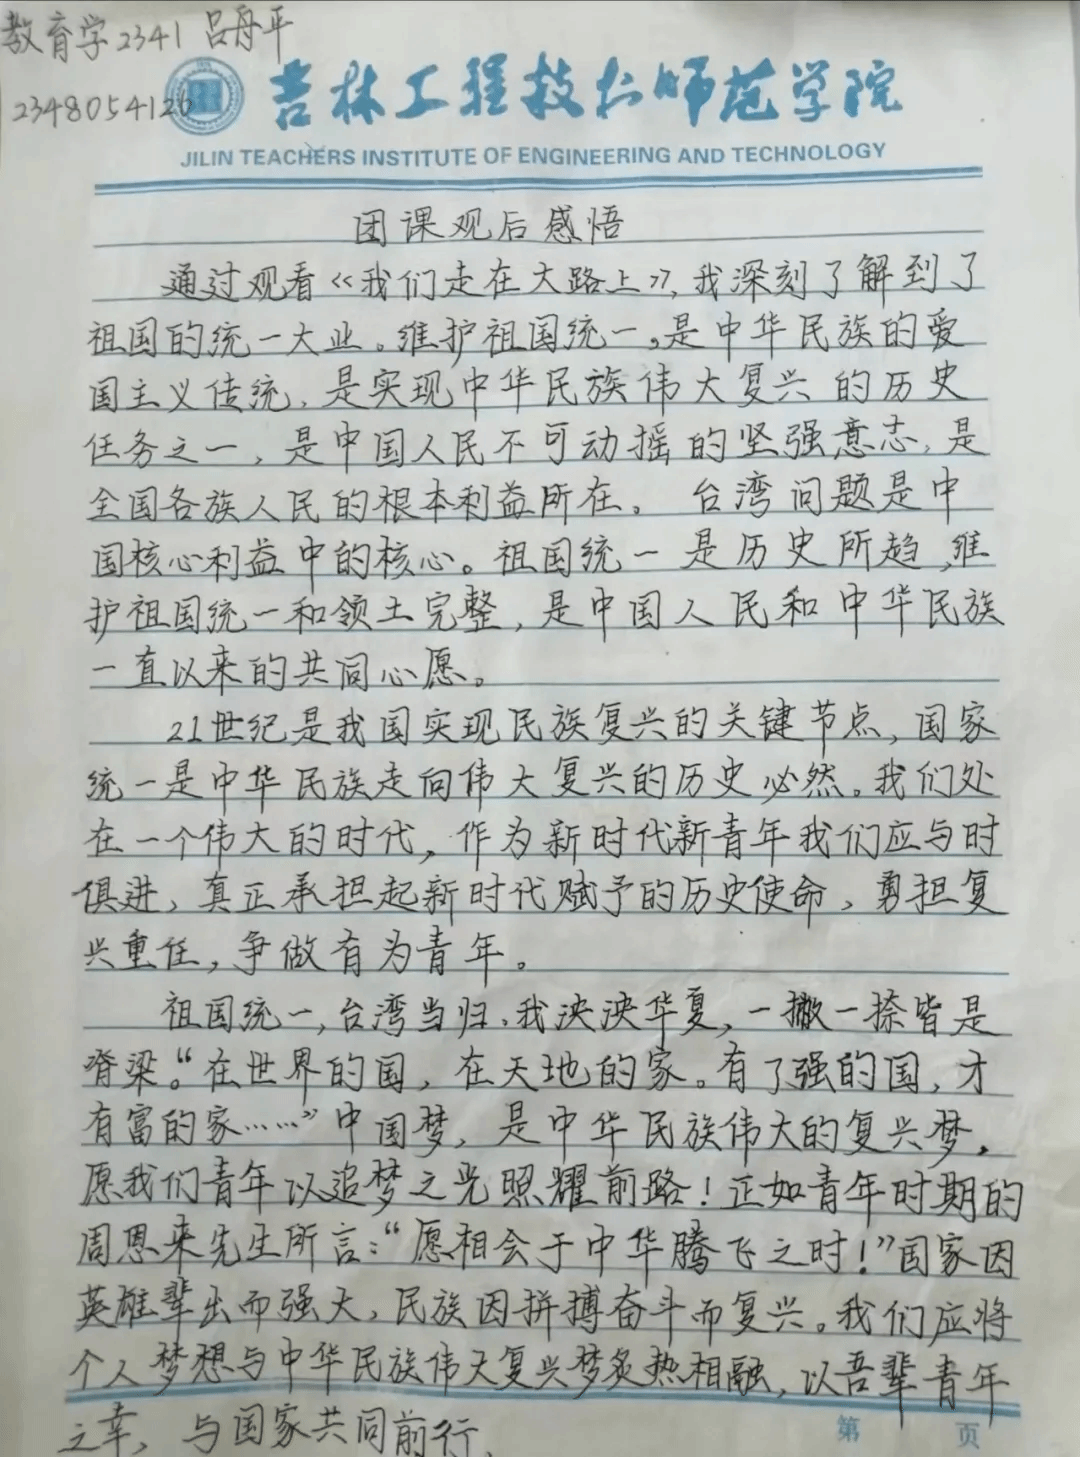 教育学2341 吕舟平
2348054126
吉林工程技术师范学院
JILIN TEACHERS INSTITUTE OF ENGINEERING AND TECHNOLOGY
团课观后感悟
通过观看《我们走在大路上》,我深刻了解到了
祖国的统一大业。维护祖国统一。是中华民族的爱
国主义传统,是实现中华民族伟大复兴的历史
任务之一,是中国人民不可动摇的坚强意志,是
全国各族人民的根本利益所在。台湾问题是中
国核心利益中的核心。祖国统一是历史所趋,维
护祖国统一和领土完整,是中国人民和中华民族
一直以来的共同心愿。
21世纪是我国实现民族复兴的关键节点,国家
统一是中华民族走向伟大复兴的历史必然。我们处
在一个伟大的时代,作为新时代新青年我们应与时
俱进,真正承担起新时代赋予的历史使命,勇担复
兴重任,争做有为青年。
祖国统一,台湾当归,我泱泱华夏,一撇一捺皆是
脊梁。“在世界的国,在天地的家。有了强的国,才
有富的家……”中国梦,是中华民族伟大的复兴梦,
愿我们青年以追梦之光照耀前路!正如青年时期的
周恩来先生所言:“愿相会于中华腾飞之时!”国家因
英雄辈出而强大,民族因拼搏奋斗而复兴。我们应将
个人梦想与中华民族伟大复兴梦炙热相融,以吾辈青年
之幸,与国家共同前行.
第 页